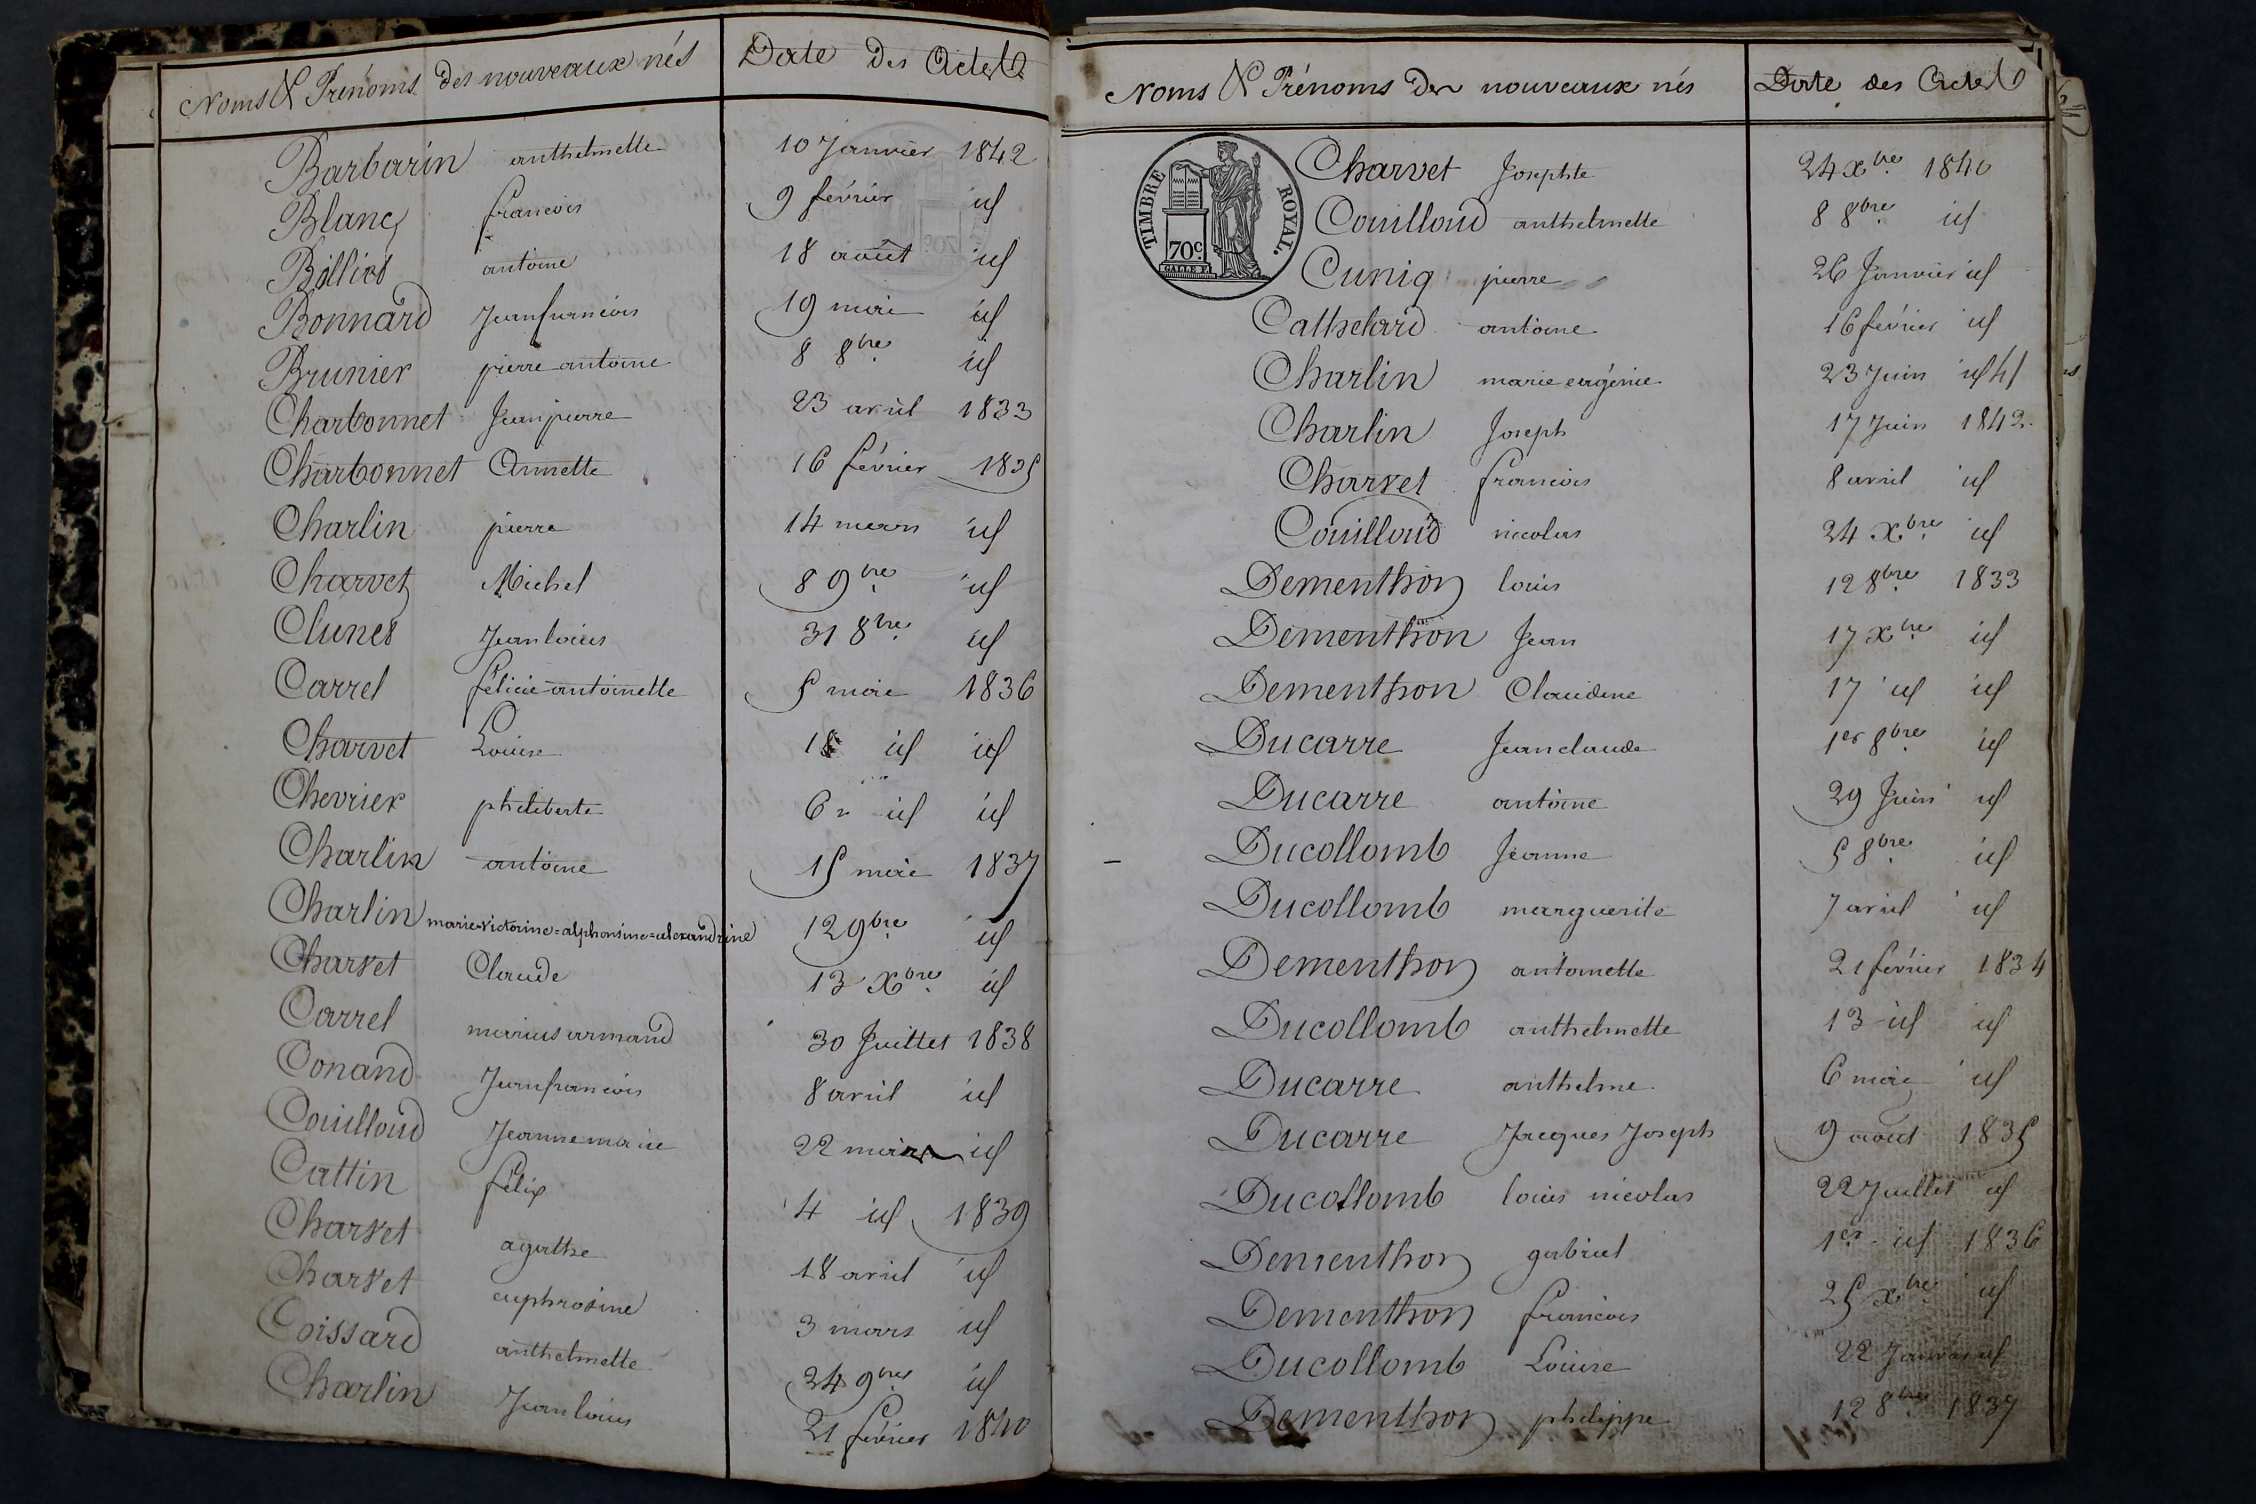 Noms & Prénoms des nouveaux nés Date des Actes
Barbarin anthelmette 10 Janvier 1842
Blanc francois 9 février id
Billiet antoine 18 août id
Bonnard Jean francois 19 mai id
Brunier pierre antoine 8 8bre id
Charbonnet Jean pierre 23 avril 1833
Charbonnet Annette 16 février 1835
Charlin pierre 14 mars id
Charvet Michel 8 9bre id
Clunet Jean louis 31 8bre id
Carrel félicie antoinette 5 mai 1836
Charvet Louise 18 id id
Chevrier philiberte 6 id id
Charlin antoine 15 mai 1837
Charlin marie=victorine=alphonsine=alexandrine 12 9bre id
Charvet Claude 13 Xbre id
Carrel marius armand 30 Juillet 1838
Conand Jean francois 8 avril id
Couilloud Jeanne marie 22 mars id
Cattin félix 4 id 1839
Charvet agathe 18 avril id
Charvet euphrosine 3 mars id
Coissard anthelmette 24 9bre id
Charlin Jean louis 21 février 1840
Noms & Prénoms des nouveaux nés Date des Actes
TIMBRE ROYAL.
70c
Charvet Josephte 24 Xbre 1840
Couilloud anthelmette 8 8bre id
Cuniq pierre 26 Janvier id
Cathelard antoine 16 février id
Charlin marie eugénie 23 Juin id 41
Charlin Joseph 17 Juin 1842
Charvet francois 8 avril id
Couilloud nicolas 24 Xbre id
Dementhon louis 12 8bre 1833
Dementhon Jean 17 Xbre id
Dementhon Claudine 17 id id
Ducarre Jean claude 1er 8bre id
Ducarre antoine 29 Juin id
Ducollomb Jeanne 5 8bre id
Ducollomb marguerite 7 avril id
Dementhon antoinette 21 février 1834
Ducollomb anthelmette 13 id id
Ducarre anthelme 6 mai id
Ducarre Jacques Joseph 9 août 1835
Ducollomb louis nicolas 22 Juillet id
Dementhon gabriel 1er id 1836
Dementhon francois 25 Xbre id
Ducollomb Louise 22 Janvier id
Dementhon philippe 12 8bre 1837